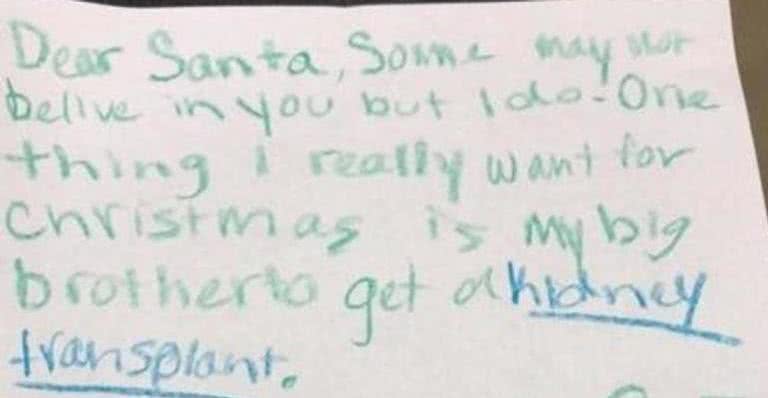 Dear Santa, Some may not
belive in you but I do! One
thing I really want for
Christmas is my big
brother to get a kidney
transplant.